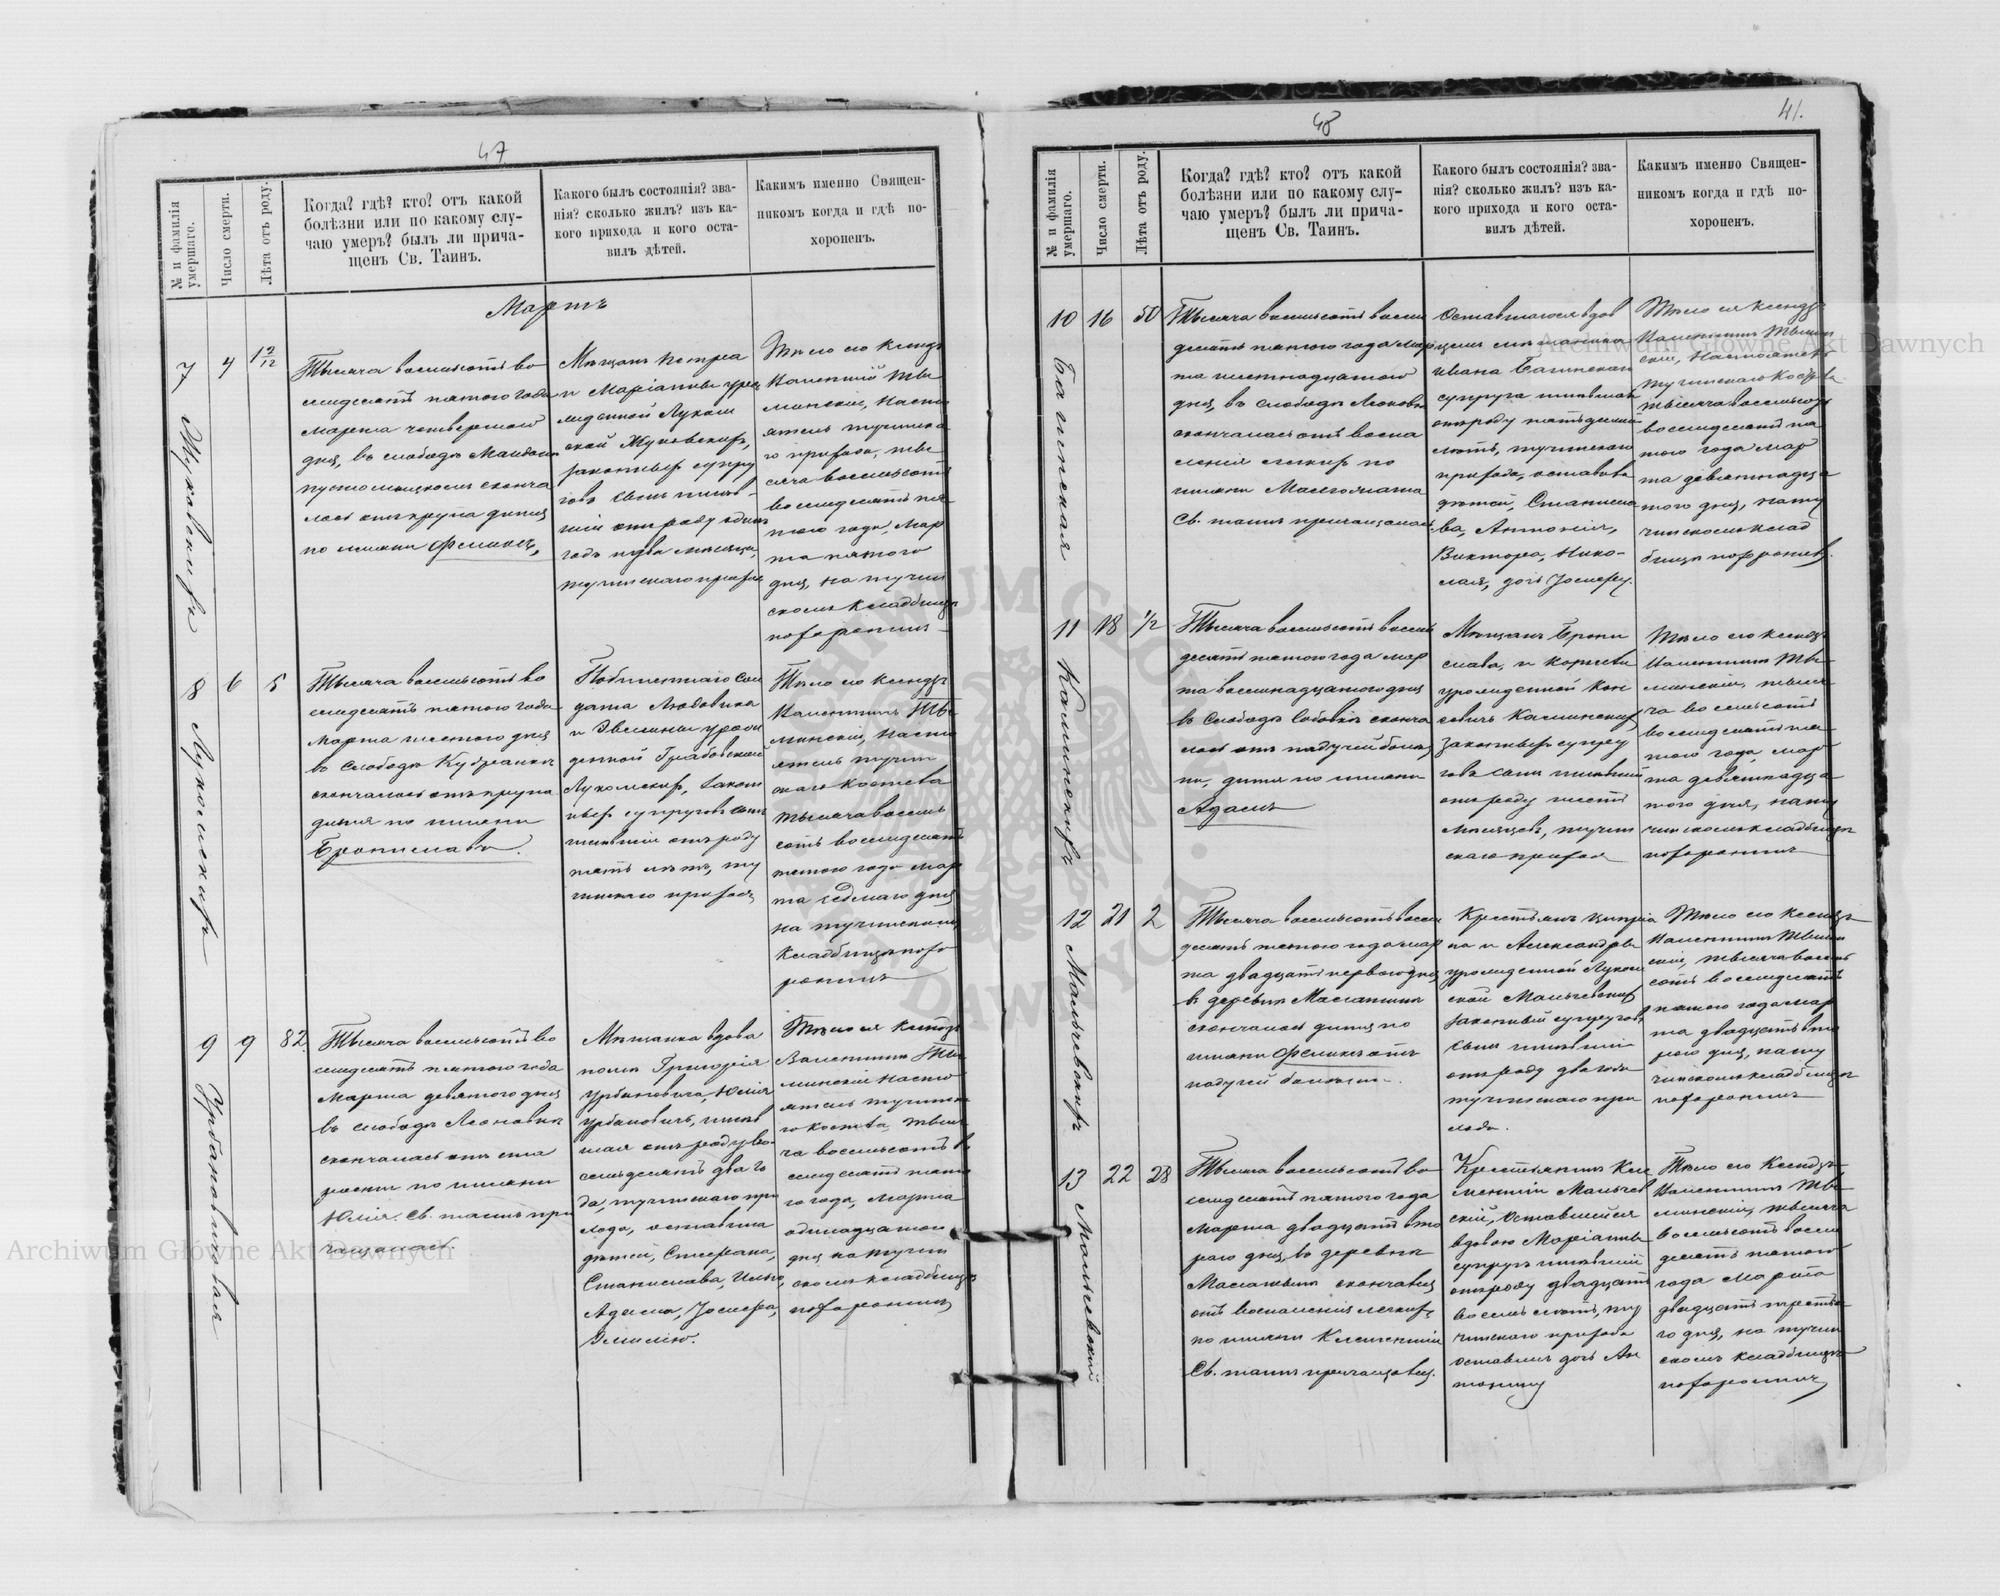 47
№ и фамилія умершаго.
Число смерти.
Лѣта отъ роду.
Когда? гдѣ? кто? отъ какой
болѣзни или по какому слу-
чаю умеръ? былъ ли прича-
щенъ Св. Таинъ.
Какого былъ состоянія? зва-
нія? сколько жилъ? изъ ка-
кого прихода и кого оста-
вилъ дѣтей.
Каким именно Священ-
никомъ когда и гдѣ по-
хороненъ.
Мартъ
7
4
1 2/12
Жуковскихъ
Тысяча восемьсотъ во
семдесятъ пятого года
Марта четвертого
дня, въ слободѣ
сконча
лось отъ крупа дитя
по имяни Феликсъ,
Мѣщанъ Петра
и Маріанны урож
денной Лукош
ской Жуковскихъ,
законныхъ супру
говъ сынъ жив
шій отъ роду одинъ
годъ мѣсяца,
тучинскаго прихода
Тѣло его Ксендзъ
Валентий Тви
минскій, Насто
ятель тучинска
го прихода, ты
сяча восемьсотъ
восемдесятъ пя
того года, Мар
та пятого
дня, на тучин
скомъ кладбищѣ
похоронилъ
8
6
5
Лукомскихъ
Тысяча восемьсотъ во
семдесятъ пятого года
Марта шестого дня
въ слободѣ
скончалось отъ крупа
дитя по имяни
Брониславъ.
сол
дата Людовика
и Эвелины урож
денной Грабовской
Лукомскихъ, закон
ныхъ супруговъ сынъ
жившій отъ роду
пять лѣтъ, ту
чинскаго прихода
Тѣло его Ксендзъ
Валентинъ Тви
минскій, Насто
ятель тучин
скаго Костела
тысяча восемь
сотъ восемдесятъ
пятого года мар
та седмаго дня
на тучинскомъ
Кладбищѣ похо
ронилъ
9
9
82
Урбановичовая
Тысяча восемьсотъ во
семдесятъ пятого года
Марта девятого дня
въ слободѣ Леоновкѣ
скончалась отъ ста
рости по имяни
Юлія. Св. таинъ при
чащалась.
Мѣщанка вдова
после Григорія
Урбановича, Юлія
Урбановичъ, жив
шая отъ роду во
семдесятъ два го
да, тучинскаго при
хода, оставила
дѣтей, Стефана,
Станислава, Илью,
Адама, Іосифа,
Эмилію.
Тѣло ея Ксендзъ
Валентинъ Тви
минскій Насто
ятель тучинска
го костела, тыся
ча восемьсотъ во
семдесятъ пято
го года, Марта
одинадцатого
дня на тучин
скомъ кладбищѣ
похоронилъ
48
41.
№ и фамилія умершаго.
Число смерти.
Лѣта отъ роду.
Когда? гдѣ? кто? отъ какой
болѣзни или по какому слу-
чаю умеръ? былъ ли прича-
щенъ Св. Таинъ.
Какого былъ состоянія? зва-
нія? сколько жилъ? изъ ка-
кого прихода и кого оста-
вилъ дѣтей.
Каким именно Священ-
никомъ когда и гдѣ по-
хороненъ.
10
16
50
Багинская
Тысяча восемьсотъ восем
десятъ пятого года мар
та шестнадцатого
дня, въ слободѣ Леоновкѣ
скончалась отъ воспа
ленія легкихъ по
имяни
Св. таинъ причащалась
Оставшагося вдов
цемъ мѣщанина
Ивана Багинскаго
супруга жившая
отъ роду пятьдесятъ
лѣтъ, тучинскаго
прихода, оставила
дѣтей, Станисла
ва, Антонія,
Виктора, Нико-
лая, дочь Іосифу.
Тѣло ея Ксендзъ
Валентинъ Твимин
скій, Настоятель
тучинскаго Костела
тысяча восемьсотъ
восемдесятъ пя
того года мар
та девятнадца
того дня, на ту
чинскомъ клад
бищѣ похоронилъ.
11
18
1/2
Каминскихъ
Тысяча восемьсотъ восемь
десятъ пятого года мар
та восемнадцатого дня
въ слободѣ сконча
лось отъ падучей болѣз
ни, дитя по имяни
Адамъ
Мѣщанъ Брони
слава, и
урожденной Кон
Каминскихъ
законныхъ супру
говъ сынъ жившій
отъ роду шесть
мѣсяцевъ, тучин
скаго прихода
Тѣло его Ксендзъ
Валентинъ Тви
минскій, тыся
ча восемьсотъ
восемдесятъ пя
того года, мар
та девятнадца
того дня, на ту
чинскомъ кладбищѣ
похоронилъ
12
21
2
Мальчевскихъ
Тысяча восемьсотъ восем
десятъ пятого года мар
та двадцать первого дня
въ деревни
скончалось дитя по
имяни Феликсъ отъ
падучей болѣзни.
Крестьянъ Ципріа
на и Александры
урожденной Лукош
ской Мальчевскихъ
законныхъ супруговъ
сынъ жившій
отъ роду два года
тучинскаго при
хода.
Тѣло его Ксендзъ
Валентинъ Твимин
скій, тысяча восемь
сотъ восемдесятъ
пятого года мар
та двадцать вто
рого дня, на ту
чинскомъ кладбищѣ
похоронилъ
13
22
28
Мальчевскій
Тысяча восемьсотъ во
семдесятъ пятого года
Марта двадцать вто
рого дня, въ деревни
скончался
отъ воспаленія легкихъ
по имяни Клементій
Св. таинъ причащовся.
Крестьянинъ Кле
ментій Мальчев
скій, оставшейся
вдовою Маріанны
супругъ жившій
отъ роду двадцать
восемь лѣтъ, ту
чинскаго прихода
оставилъ дочь Ан
тонину
Тѣло его Ксендзъ
Валентинъ Тви
минскій, тысяча
восемьсотъ восем
десятъ пятого
года Марта
двадцать третья
го дня, на тучин
скомъ кладбищѣ
похоронилъ
Archiwum Główne Akt Dawnych
Archiwum Główne Akt Dawnych
ARCHIWUM GŁÓWNE AKT DAWNYCH